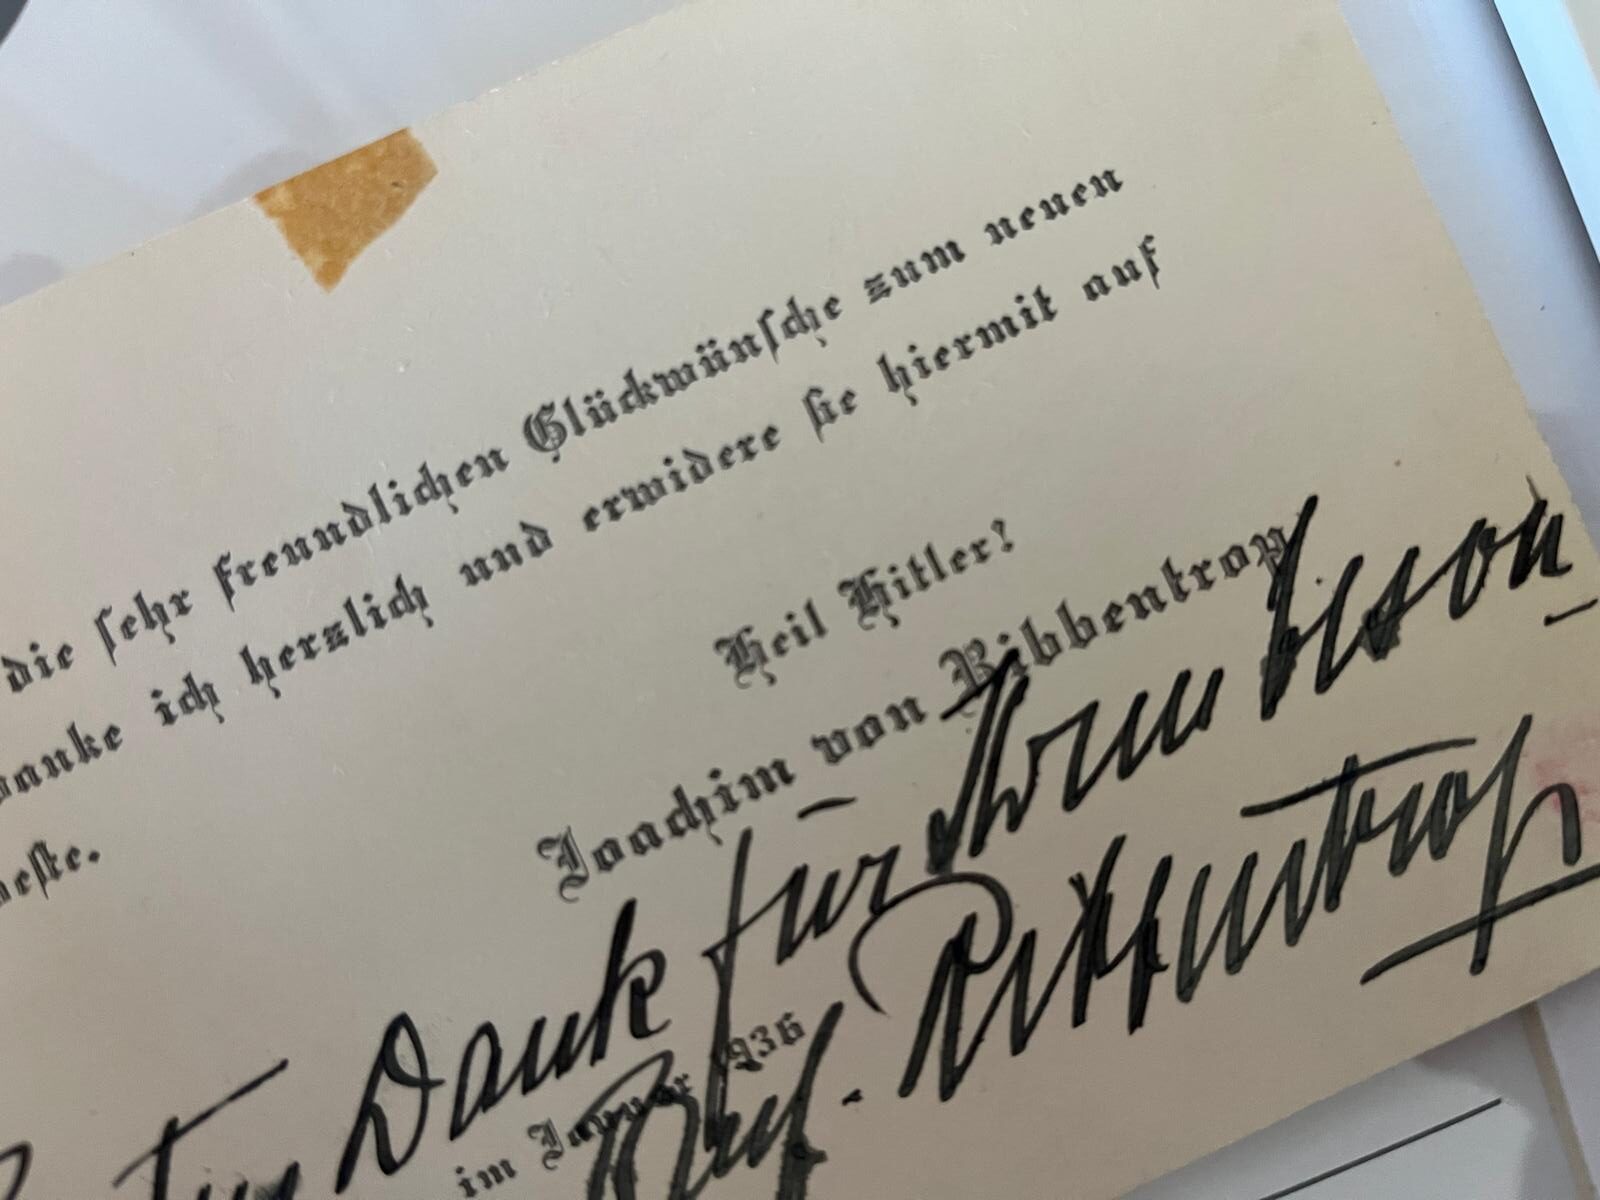 die sehr freundlichen Glückwünsche zum neuen
danke ich herzlich und erwidere sie hiermit auf
Heil Hitler!
Joachim von Ribbentrop
im Januar 1936
Dank für
Ribbentrop